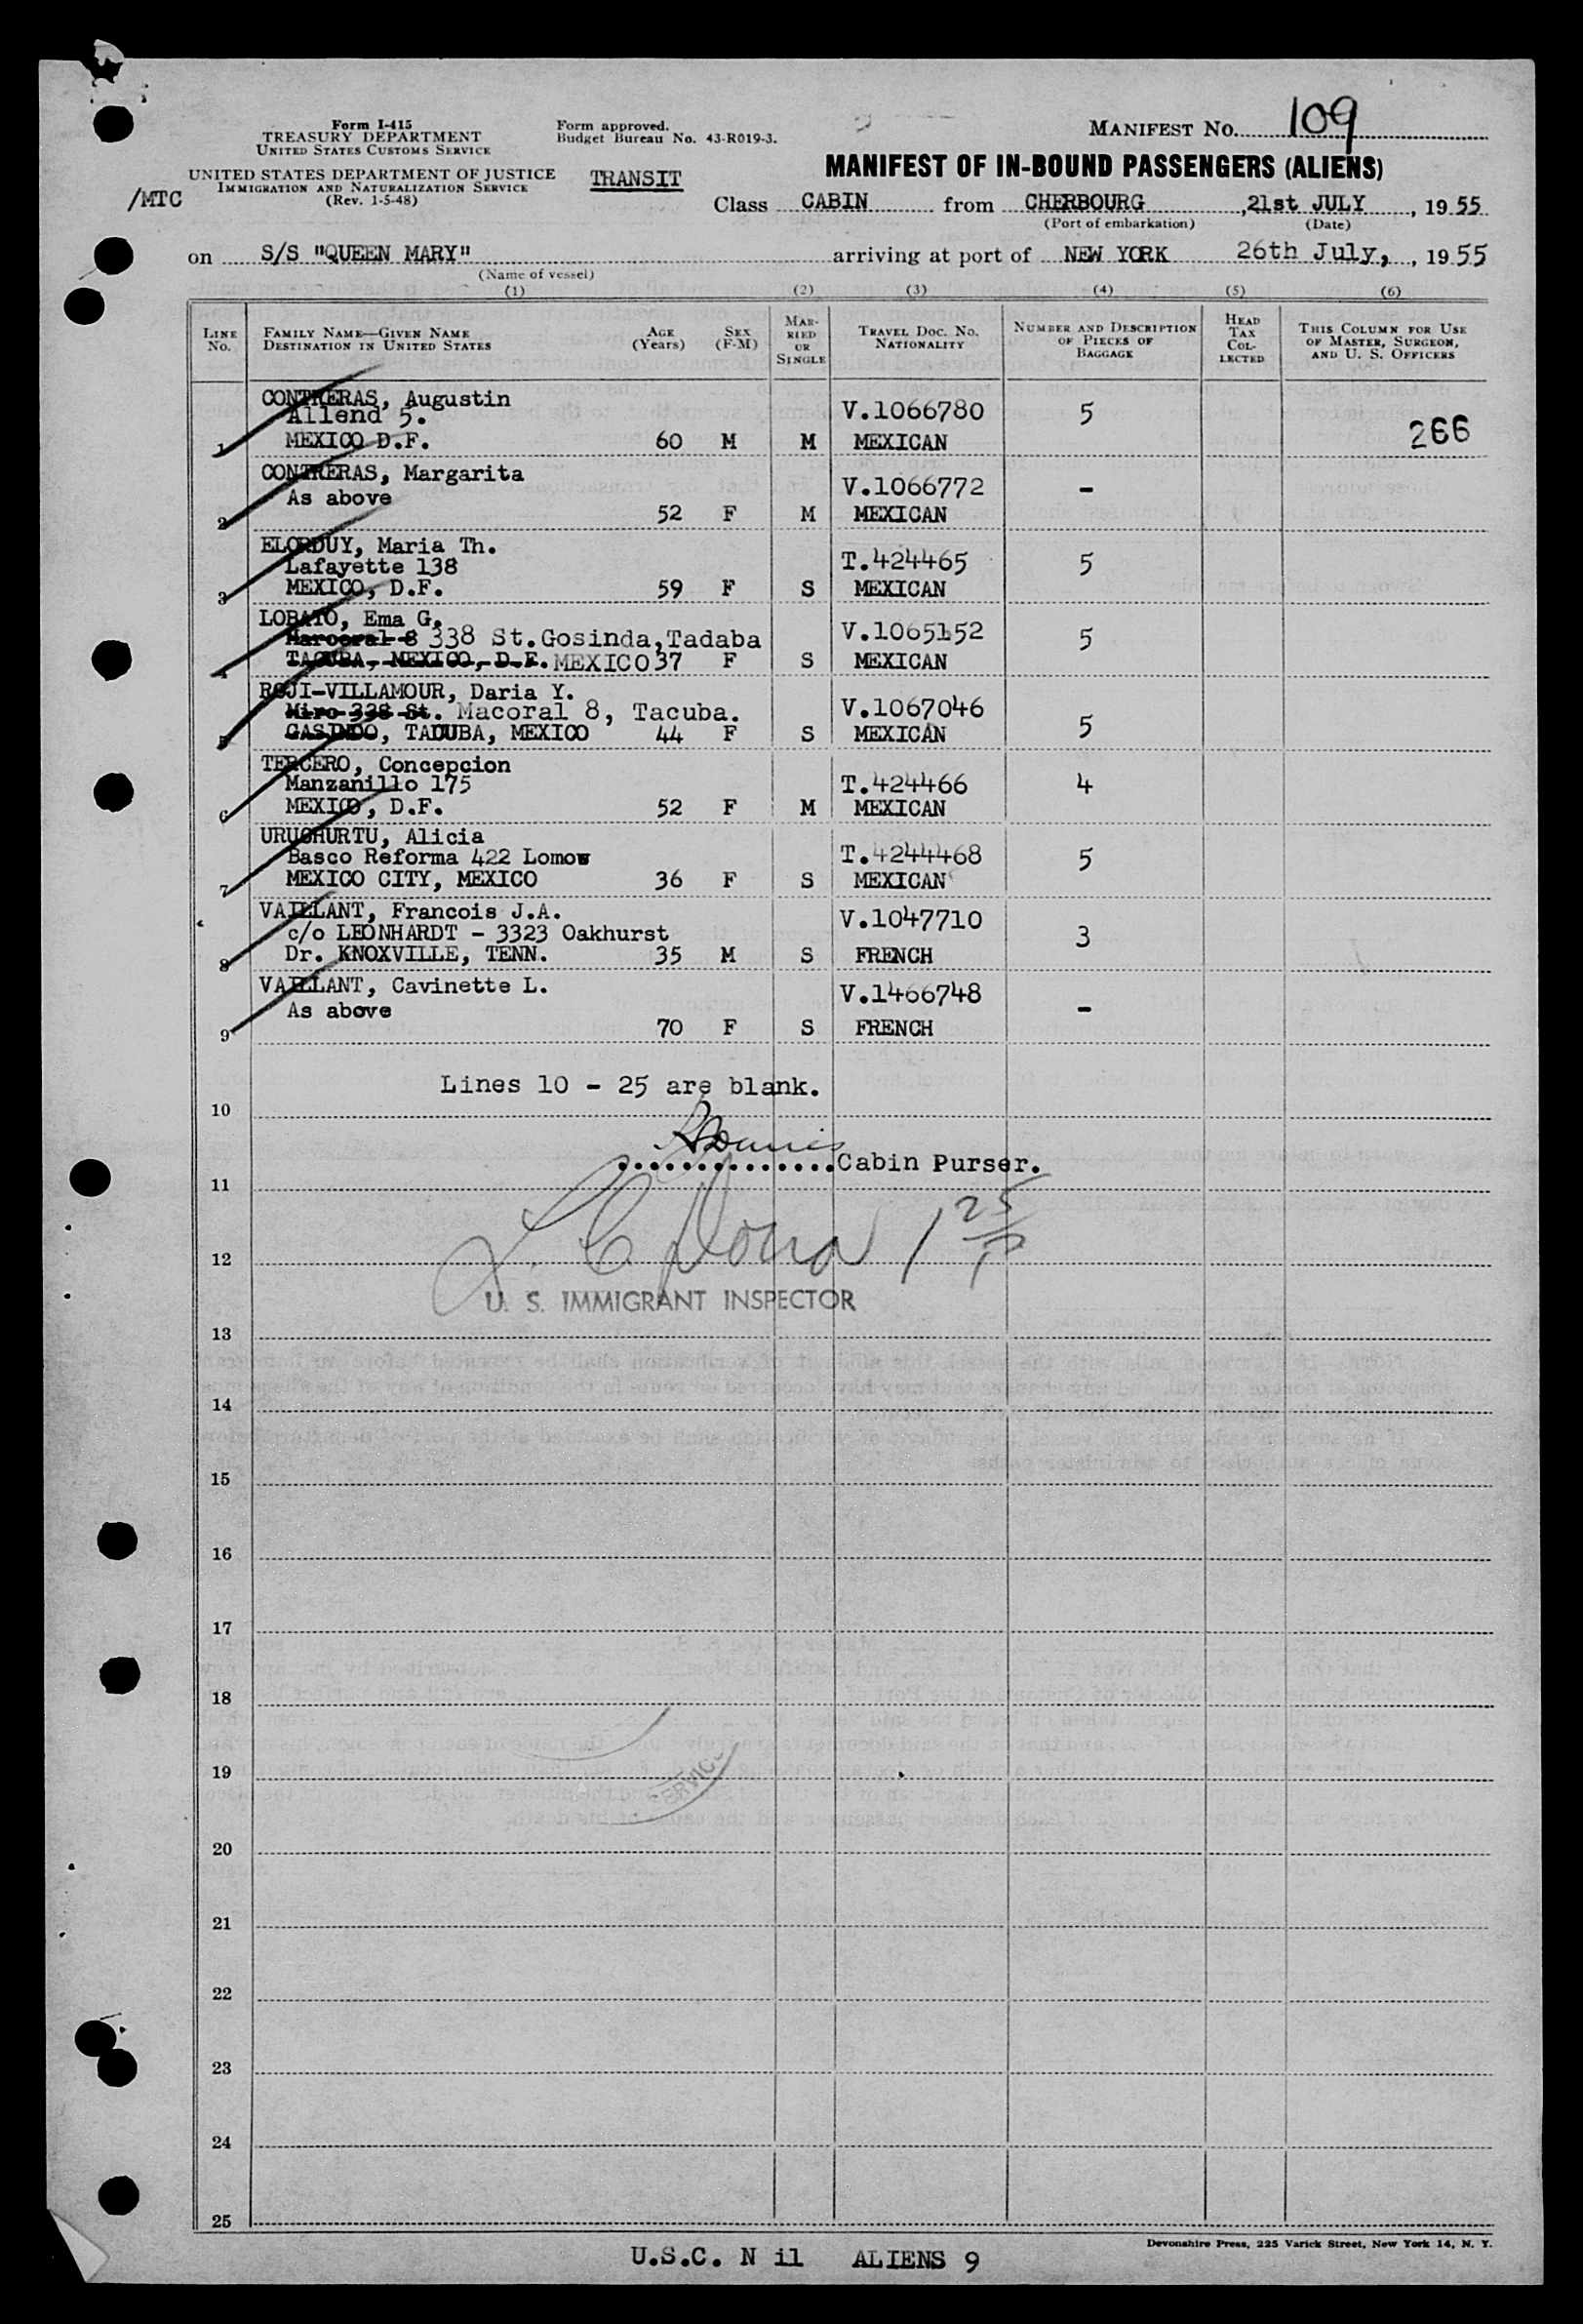 Form I-415
TREASURY DEPARTMENT
UNITED STATES CUSTOMS SERVICE
UNITED STATES DEPARTMENT OF JUSTICE
IMMIGRATION AND NATURALIZATION SERVICE
(Rev. 1-5-48)
/MTC
Form approved.
Budget Bureau No. 43-R019-3.
TRANSIT
MANIFEST NO. 109
MANIFEST OF IN-BOUND PASSENGERS (ALIENS)
Class CABIN from CHERBOURG, 21st JULY, 1955
(Port of embarkation) (Date)
on S/S "QUEEN MARY" arriving at port of NEW YORK 26th July,, 1955
(Name of vessel)
(1) (2) (3) (4) (5) (6)
LINE NO. FAMILY NAME—GIVEN NAME DESTINATION IN UNITED STATES AGE (Years) SEX (F-M) MARRIED OR SINGLE TRAVEL DOC. NO. NATIONALITY NUMBER AND DESCRIPTION OF PIECES OF BAGGAGE HEAD TAX COLLECTED THIS COLUMN FOR USE OF MASTER, SURGEON, AND U. S. OFFICERS
CONTRERAS, Augustin
Allend 5. V.1066780 5
1 MEXICO D.F. 60 M M MEXICAN 266
CONTRERAS, Margarita
As above V.1066772 -
2 52 F M MEXICAN
ELORDUY, Maria Th.
Lafayette 138 T.424465 5
3 MEXICO, D.F. 59 F S MEXICAN
LOBATO, Ema G.
Marcoral 8 338 St.Gosinda,Tadaba V.1065152 5
4 TACUBA, MEXICO, D.F. MEXICO 37 F S MEXICAN
ROJI-VILLAMOUR, Daria Y.
Miro 338 St. Macoral 8, Tacuba. V.1067046
5 GASINDO, TACUBA, MEXICO 44 F S MEXICAN 5
TERCERO, Concepcion
Manzanillo 175 T.424466 4
6 MEXICO, D.F. 52 F M MEXICAN
URUCHURTU, Alicia
Basco Reforma 422 Lomow T.4244468 5
7 MEXICO CITY, MEXICO 36 F S MEXICAN
VAILLANT, Francois J.A. V.1047710
c/o LEONHARDT - 3323 Oakhurst 3
8 Dr. KNOXVILLE, TENN. 35 M S FRENCH
VAILLANT, Cavinette L. V.1466748
As above -
9 70 F S FRENCH
Lines 10 - 25 are blank.
10
..............Cabin Purser.
11
12
U. S. IMMIGRANT INSPECTOR
13
14
15
16
17
18
19
SERVICE
20
21
22
23
24
25
Devonshire Press, 225 Varick Street, New York 14, N. Y.
U.S.C. N il ALIENS 9